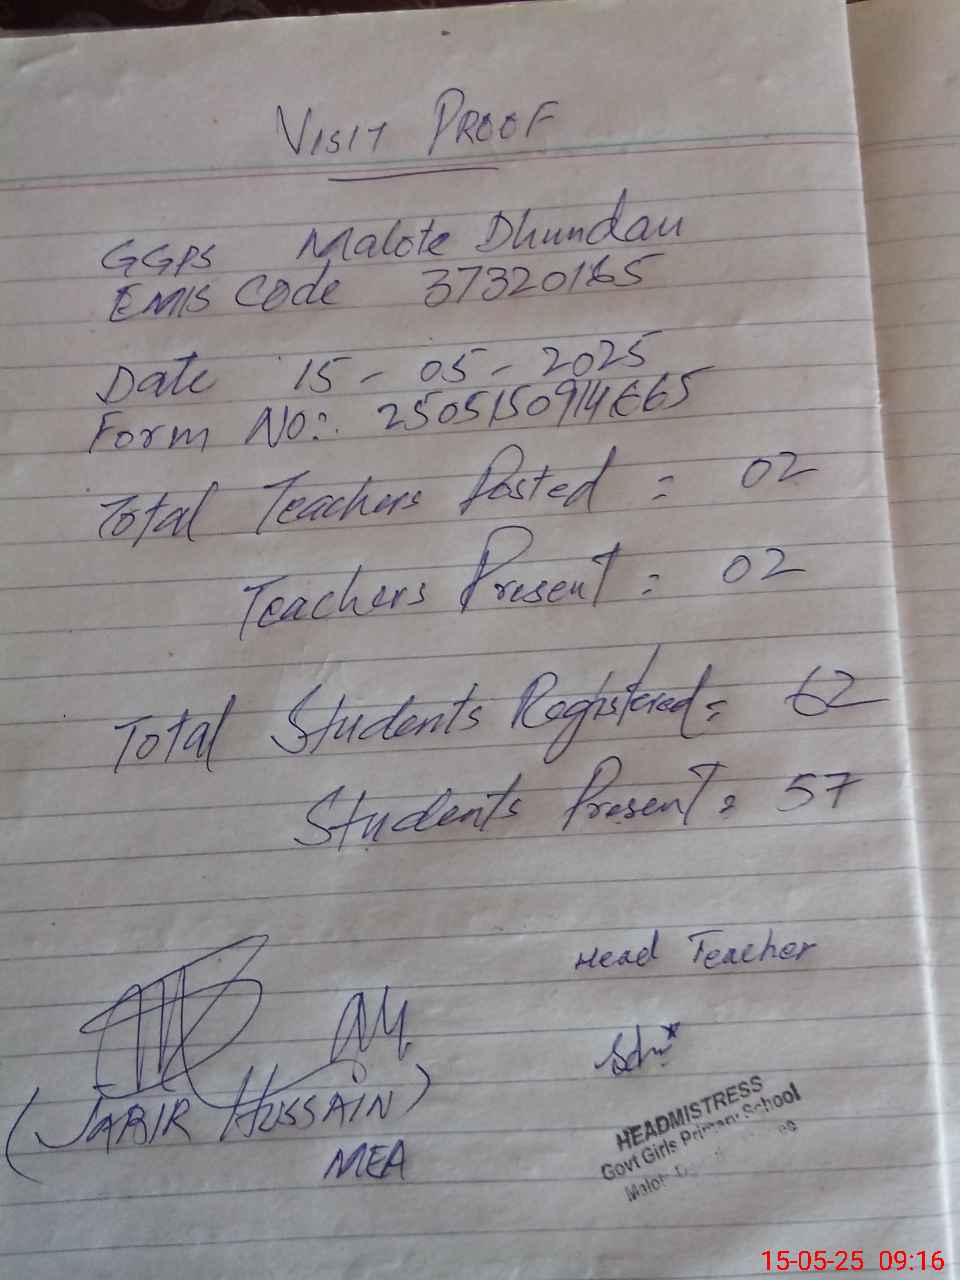 VISIT PROOF
GGPS Malote Dhundan
EMIS Code 37320165
Date 15-05-2025
Form No:. 2505150914665
Total Teachers Posted = 02
Teachers Present = 02
Total Students Registered = 62
Students Present = 57
Head Teacher
(JABIR HUSSAIN)
MEA
HEADMISTRESS
Govt Girls Primary School
15-05-25 09:16